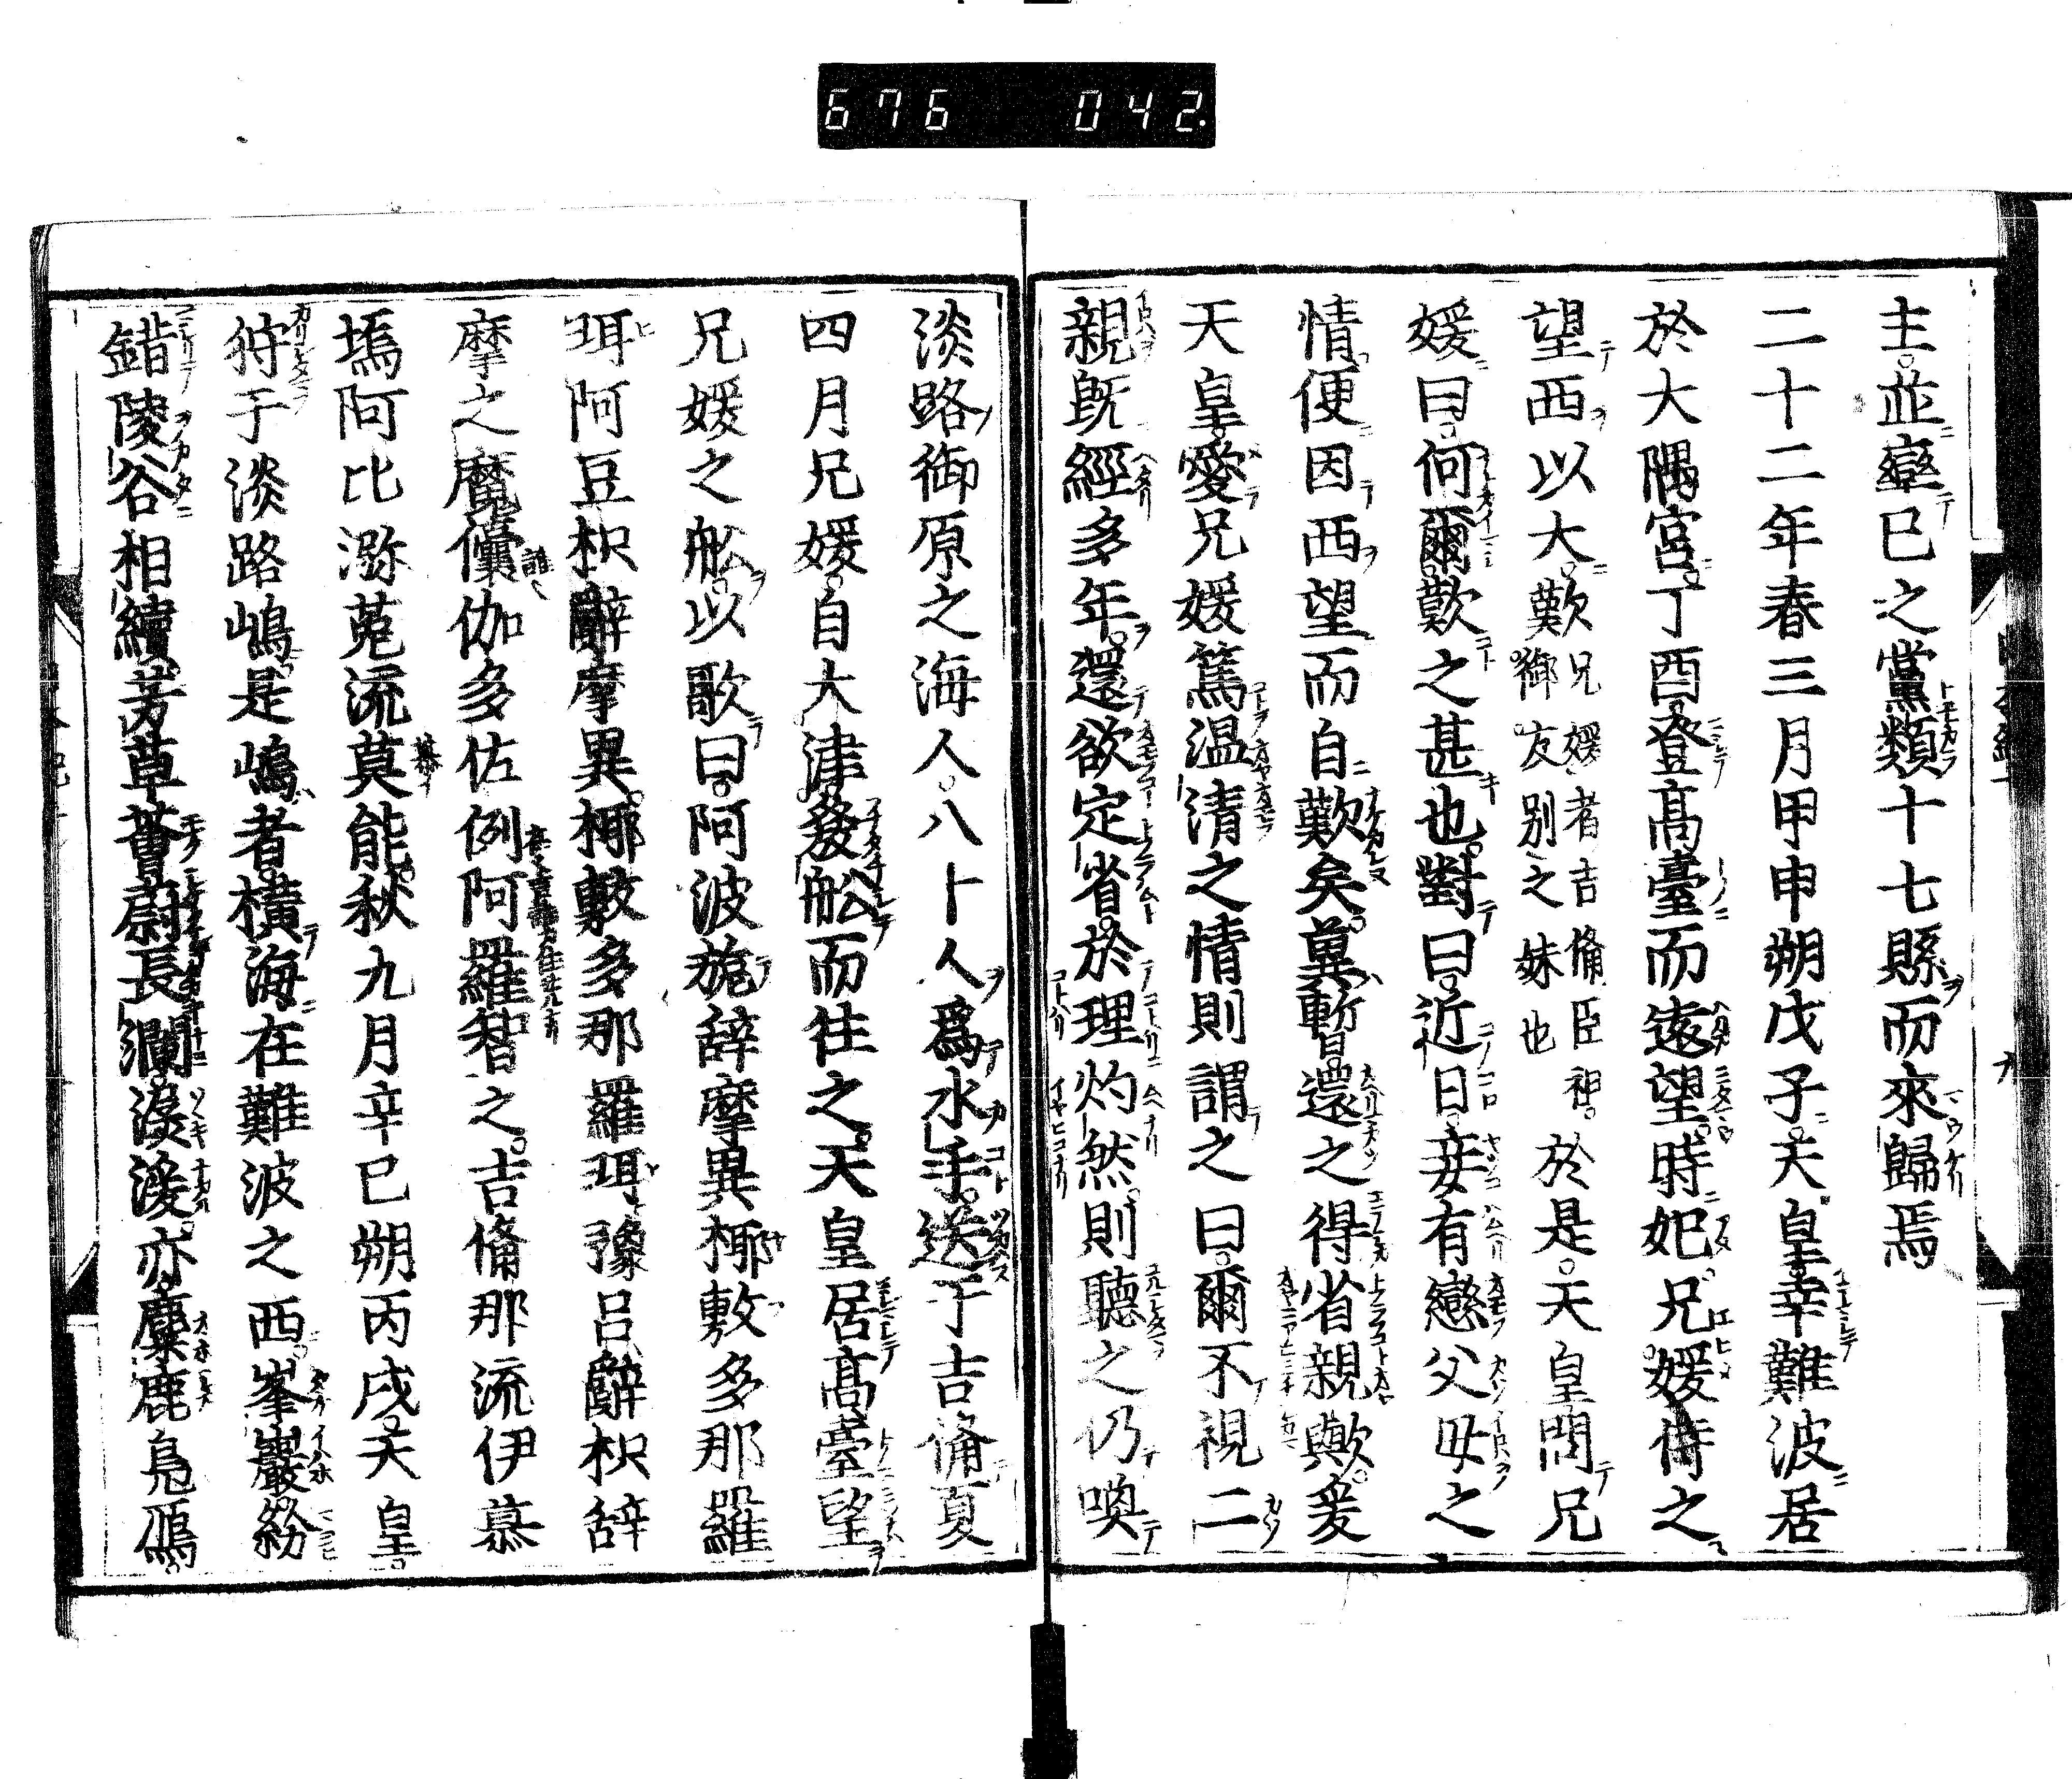 676 042
主並率已之黨類十七縣而來歸焉
二十二年春三月甲申朔戊子天皇幸難波居
於大隅宮丁酉登髙臺而遠望時妃兄媛侍之
望西以大歎兄媛者吉備臣祖御友别之妹也於是天皇問兄
媛曰何爾歎之甚也對曰近日妾有戀父母之
情便因西望而自歎矣冀暫還之得省親歟爰
天皇愛兄媛篤温凊之情則謂之曰爾不視二
親既經多年還欲定省於理灼然則聽之仍喚
淡路御原之海人八十人爲水手送于吉備夏
四月兄媛自大津發舩而往之天皇居髙臺望
兄媛之舩以歌曰阿波旎辞摩異椰敷多那羅
珥阿豆枳辭摩異椰敷多那羅珥豫呂辭枳辞
摩之魔儾伽多佐例阿羅智之吉備那流伊慕
塢阿比瀰菟流莫能秋九月辛巳朔丙戌天皇
狩于淡路嶋是嶋者横海在難波之西峯巖紛
錯陵谷相續芳草薈蔚長瀾潺湲亦麋鹿鳬鴈